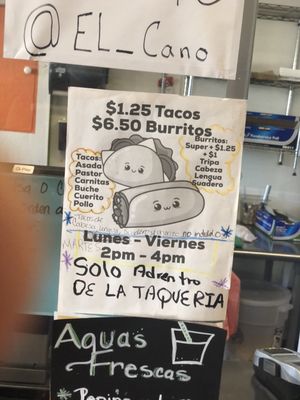 @EL_Cano
$1.25 Tacos
$6.50 Burritos
Tacos:
Asada
Pastor
Carnitas
Buche
Cuerito
Pollo
Burritos:
Super + $1.25
+ $1
Tripa
Cabeza
Lengua
Suadero
Tacos de
no incluido
MARTES
Lunes - Viernes
2pm - 4pm
SOLO Adrentro
DE LA TAQUERIA
Aguas
Frescas